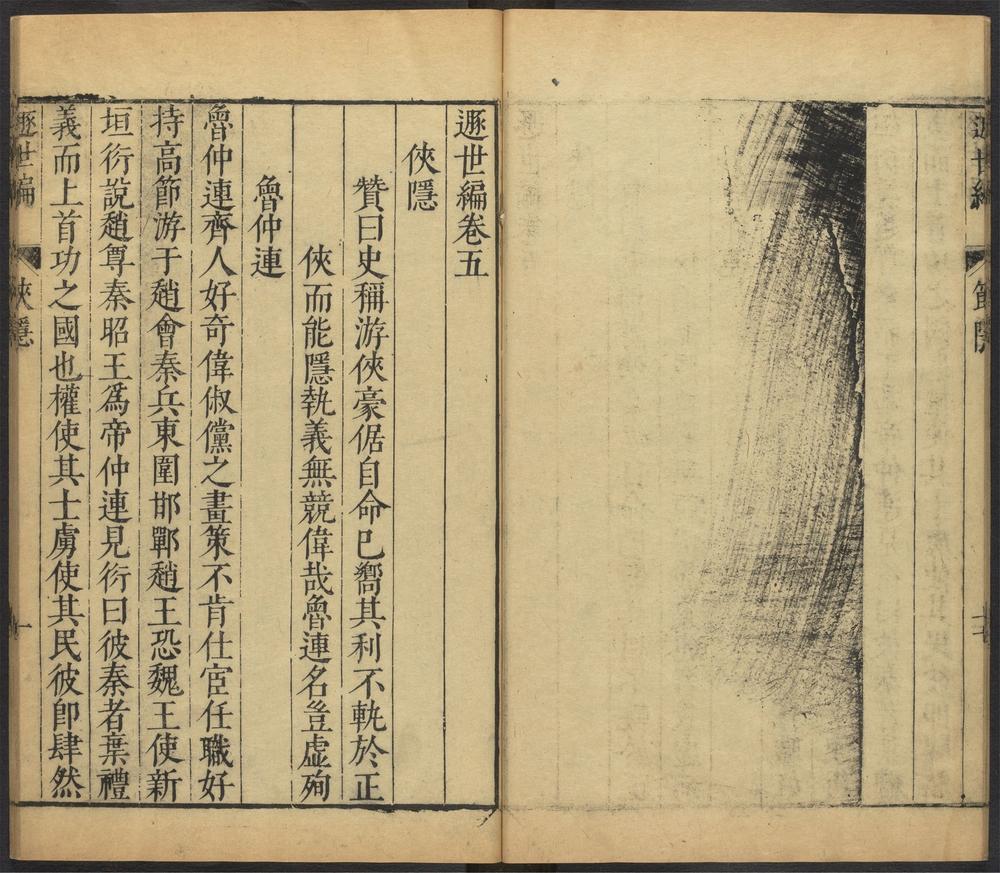 遯世編卷五
俠隱
贊曰史稱游俠豪倨自命已嚮其利不軌於正
俠而能隱執義無競偉哉魯連名豈虛殉
魯仲連
魯仲連齊人好奇偉俶儻之畫策不肯仕宦任職好
持高節游于趙會秦兵東圍邯鄲趙王恐魏王使新
垣衍說趙尊秦昭王爲帝仲連見衍曰彼秦者棄禮
義而上首功之國也權使其士虜使其民彼卽肆然
遯世編
俠隱
一